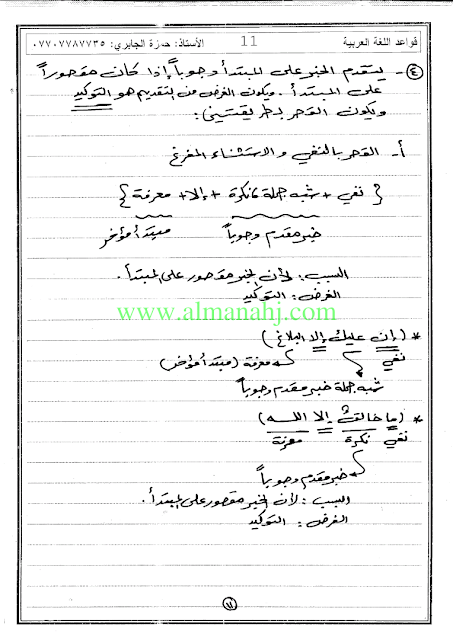 قواعد اللغة العربية 11 الأستاذ: حمزة الجابري: ٠٧٧٠٧٧٨٧٧٣٥
٤- يتقدم الخبر على المبتدأ وجوباً إذا كان مقصوراً
على المبتدأ . ويكون الغرض من التقديم هو التوكيد
ويكون القصر بطريقتين :
أ- القصر بالنفي والاستثناء المفرغ
{ نفي + شبه جملة / نكرة + إلا + معرفة }
خبر مقدم وجوباً مبتدأ مؤخر
السبب : لأن الخبر مقصور على المبتدأ .
الغرض : التوكيد
www.almanahj.com
* (إن عليك إلا البلاغ)
نفي معرفة (مبتدأ مؤخر)
شبه جملة خبر مقدم وجوباً
* (ما خالقٌ إلا الله)
نفي نكرة معرفة
خبر مقدم وجوباً
السبب : لأن الخبر مقصور على المبتدأ .
الغرض : التوكيد
١١